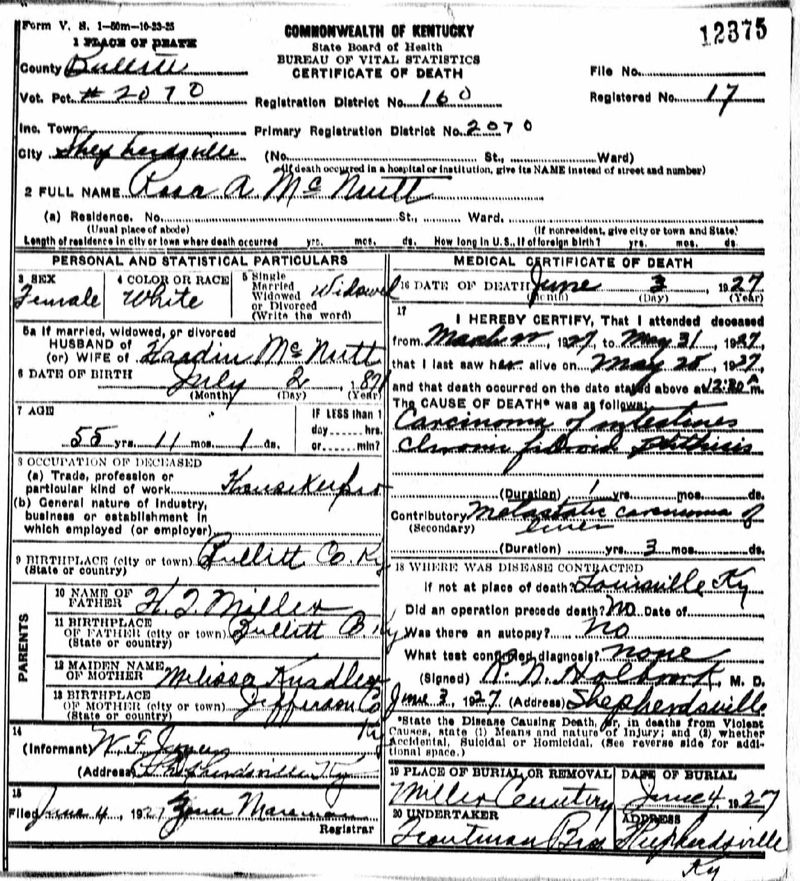 Form V. S. 1-50m-10-23-25
1 PLACE OF DEATH
COMMONWEALTH OF KENTUCKY
State Board of Health
BUREAU OF VITAL STATISTICS
CERTIFICATE OF DEATH
12375
County Bullitt
File No.
Vot. Pct. #2070
Registration District No. 160
Registered No. 17
Inc. Town
Primary Registration District No. 2070
City Shepherdsville (No. St., Ward)
(If death occurred in a hospital or institution, give its NAME instead of street and number)
2 FULL NAME Rosa A McNutt
(a) Residence. No. St., Ward.
(Usual place of abode) (If nonresident, give city or town and State)
Length of residence in city or town where death occurred yrs. mos. ds. How long in U.S., if of foreign birth? yrs. mos. ds.
PERSONAL AND STATISTICAL PARTICULARS
3 SEX
Female
4 COLOR OR RACE
White
5 Single
Married
Widowed
or Divorced
(Write the word)
Widowed
5a If married, widowed, or divorced
HUSBAND of
(or) WIFE of Hardin McNutt
6 DATE OF BIRTH July 2, 1871
(Month) (Day) (Year)
7 AGE
55 yrs. 11 mos. 1 ds.
IF LESS than 1
day hrs.
or min?
8 OCCUPATION OF DECEASED
(a) Trade, profession or
particular kind of work Housekeeper
(b) General nature of industry,
business or establishment in
which employed (or employer)
9 BIRTHPLACE (city or town) Bullitt Co Ky
(State or country)
PARENTS
10 NAME OF
FATHER H. T Miller
11 BIRTHPLACE
OF FATHER (city or town) Bullitt Co Ky
(State or country)
12 MAIDEN NAME
OF MOTHER Melissa Knadler
13 BIRTHPLACE
OF MOTHER (city or town) Jefferson Co
(State or country) Ky
14
(Informant) W. F. Jones
(Address) Shepherdsville Ky
15
Filed June 4, 1927
Registrar
MEDICAL CERTIFICATE OF DEATH
16 DATE OF DEATH June 3 1927
(Month) (Day) (Year)
17
I HEREBY CERTIFY, That I attended deceased
from March 1927 to May 31, 1927,
that I last saw her alive on May 28, 1927,
and that death occurred on the date stated above at 12:30 a m.
The CAUSE OF DEATH* was as follows:
Carcinoma of intestines
Chronic fibroid phthisis
(Duration) 1 yrs. mos. ds.
Contributory Metastatic carcinoma of
(Secondary) liver
(Duration) yrs. 3 mos. ds.
18 WHERE WAS DISEASE CONTRACTED
If not at place of death? Louisville Ky
Did an operation precede death? No Date of
Was there an autopsy? no
What test confirmed diagnosis? none
(Signed) R. N. Holbrook, M. D.
June 3, 1927 (Address) Shepherdsville
*State the Disease Causing Death, or, in deaths from Violent
Causes, state (1) Means and nature of Injury; and (2) whether
Accidental, Suicidal or Homicidal. (See reverse side for addi-
tional space.)
19 PLACE OF BURIAL OR REMOVAL
Miller Cemetery
DATE OF BURIAL
June 4, 1927
20 UNDERTAKER
Troutman Bros
ADDRESS
Shepherdsville
Ky